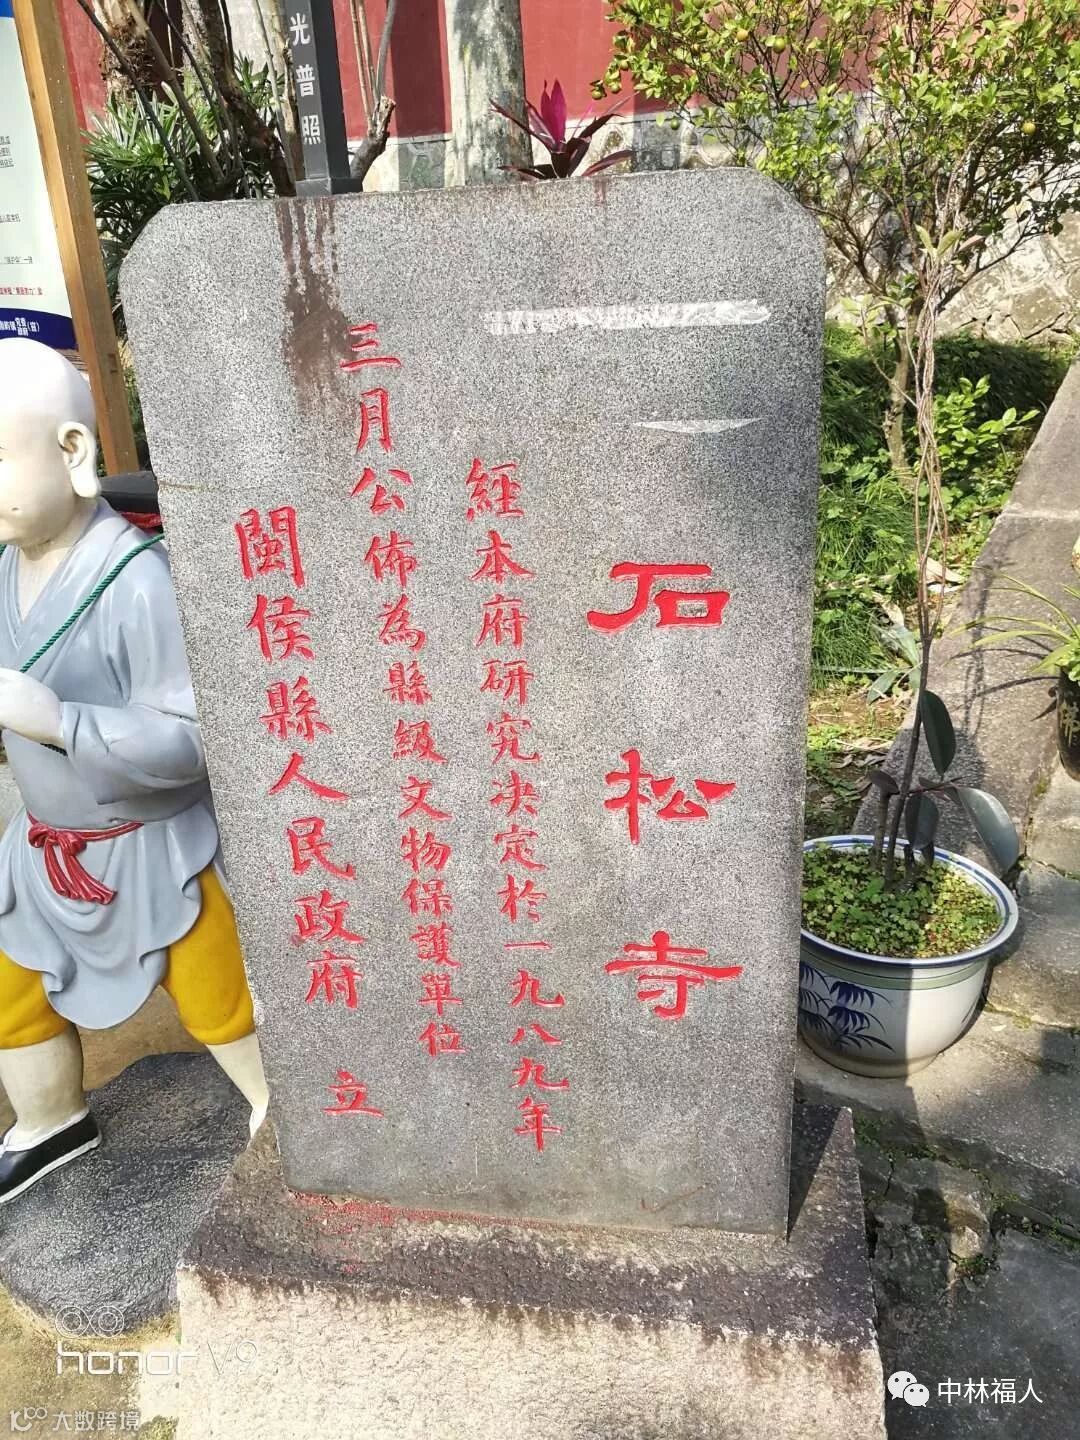 石松寺
經本府研究决定於一九八九年
三月公佈為縣級文物保護單位
閩侯縣人民政府 立
光普照
honor V9
大数跨境
中林福人